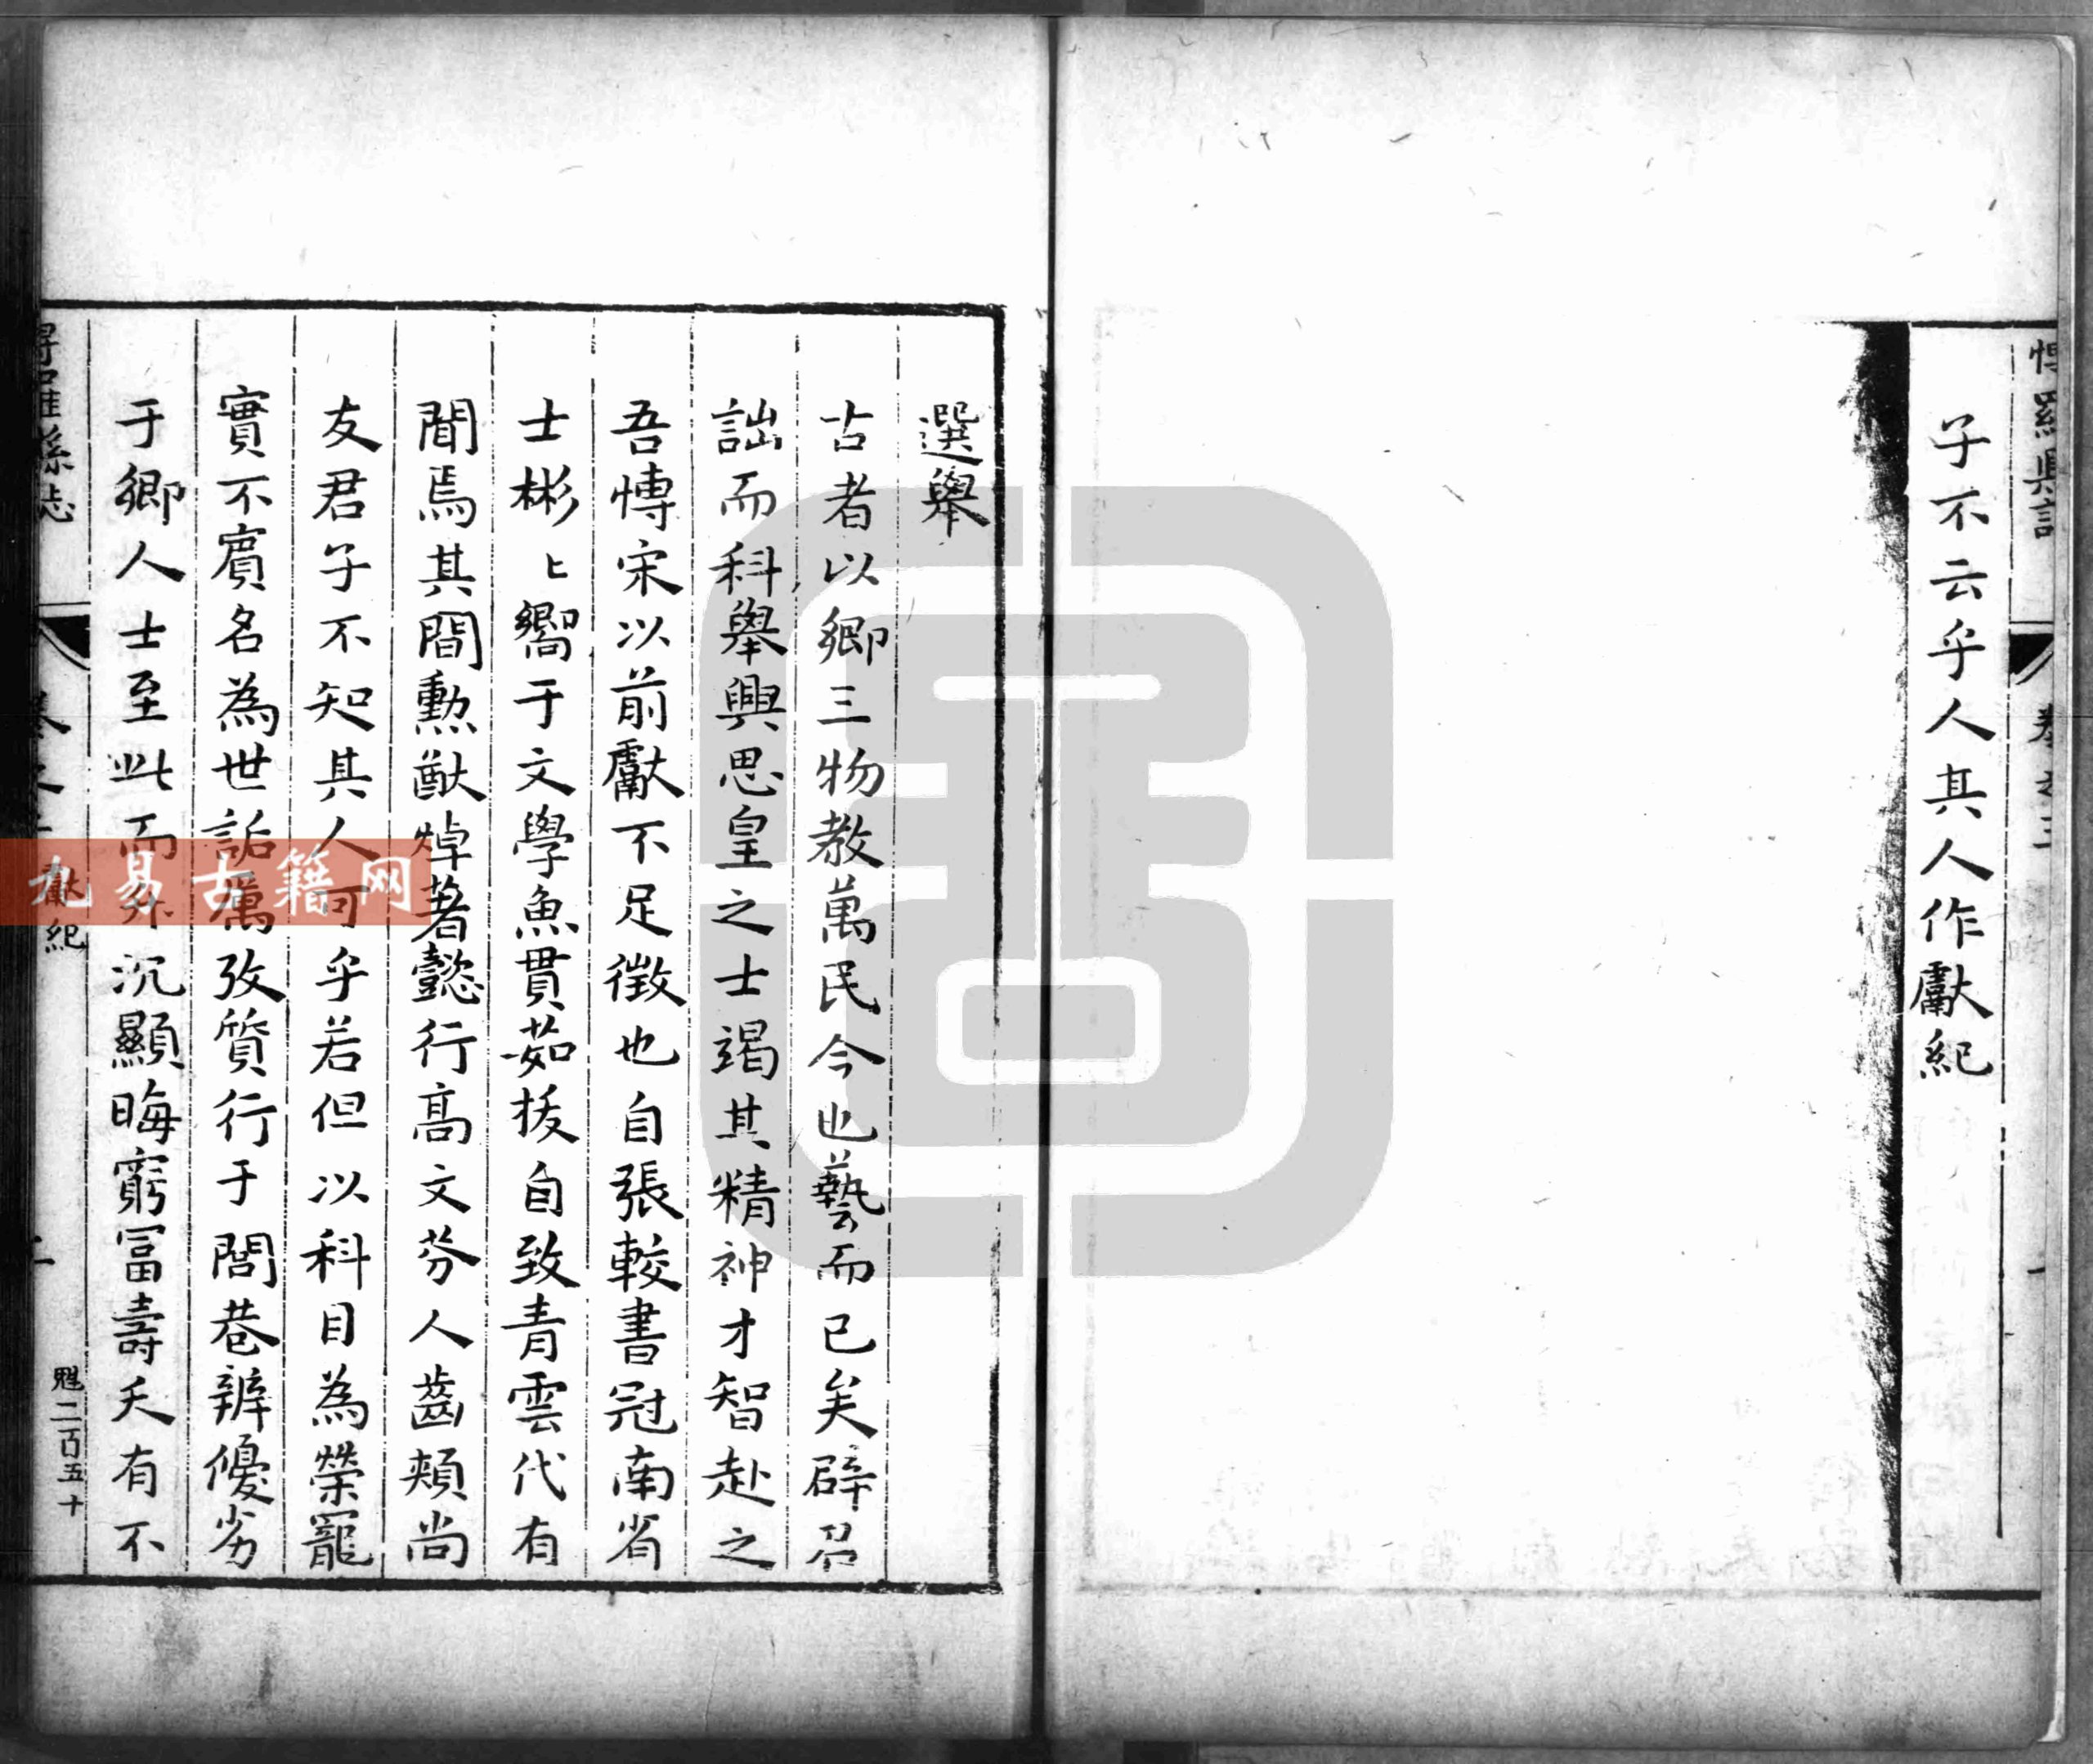 子不云乎人其人作獻紀
選舉
古者以鄉三物教萬民今也藝而已矣辟召
詘而科舉興思皇之士竭其精神才智赴之
吾愽宋以前獻不足徵也自張較書冠南省
士彬〻嚮于文學魚貫茹拔自致青雲代有
聞焉其間勲猷焯著懿行高文芬人齒頰尚
友君子不知其人可乎若但以科目為榮寵
實不賔名為世詬厲攷質行于閭巷辨優劣
于鄉人士至此而升沉顯晦窮冨壽夭有不
獻紀
二百五十
九易古籍网